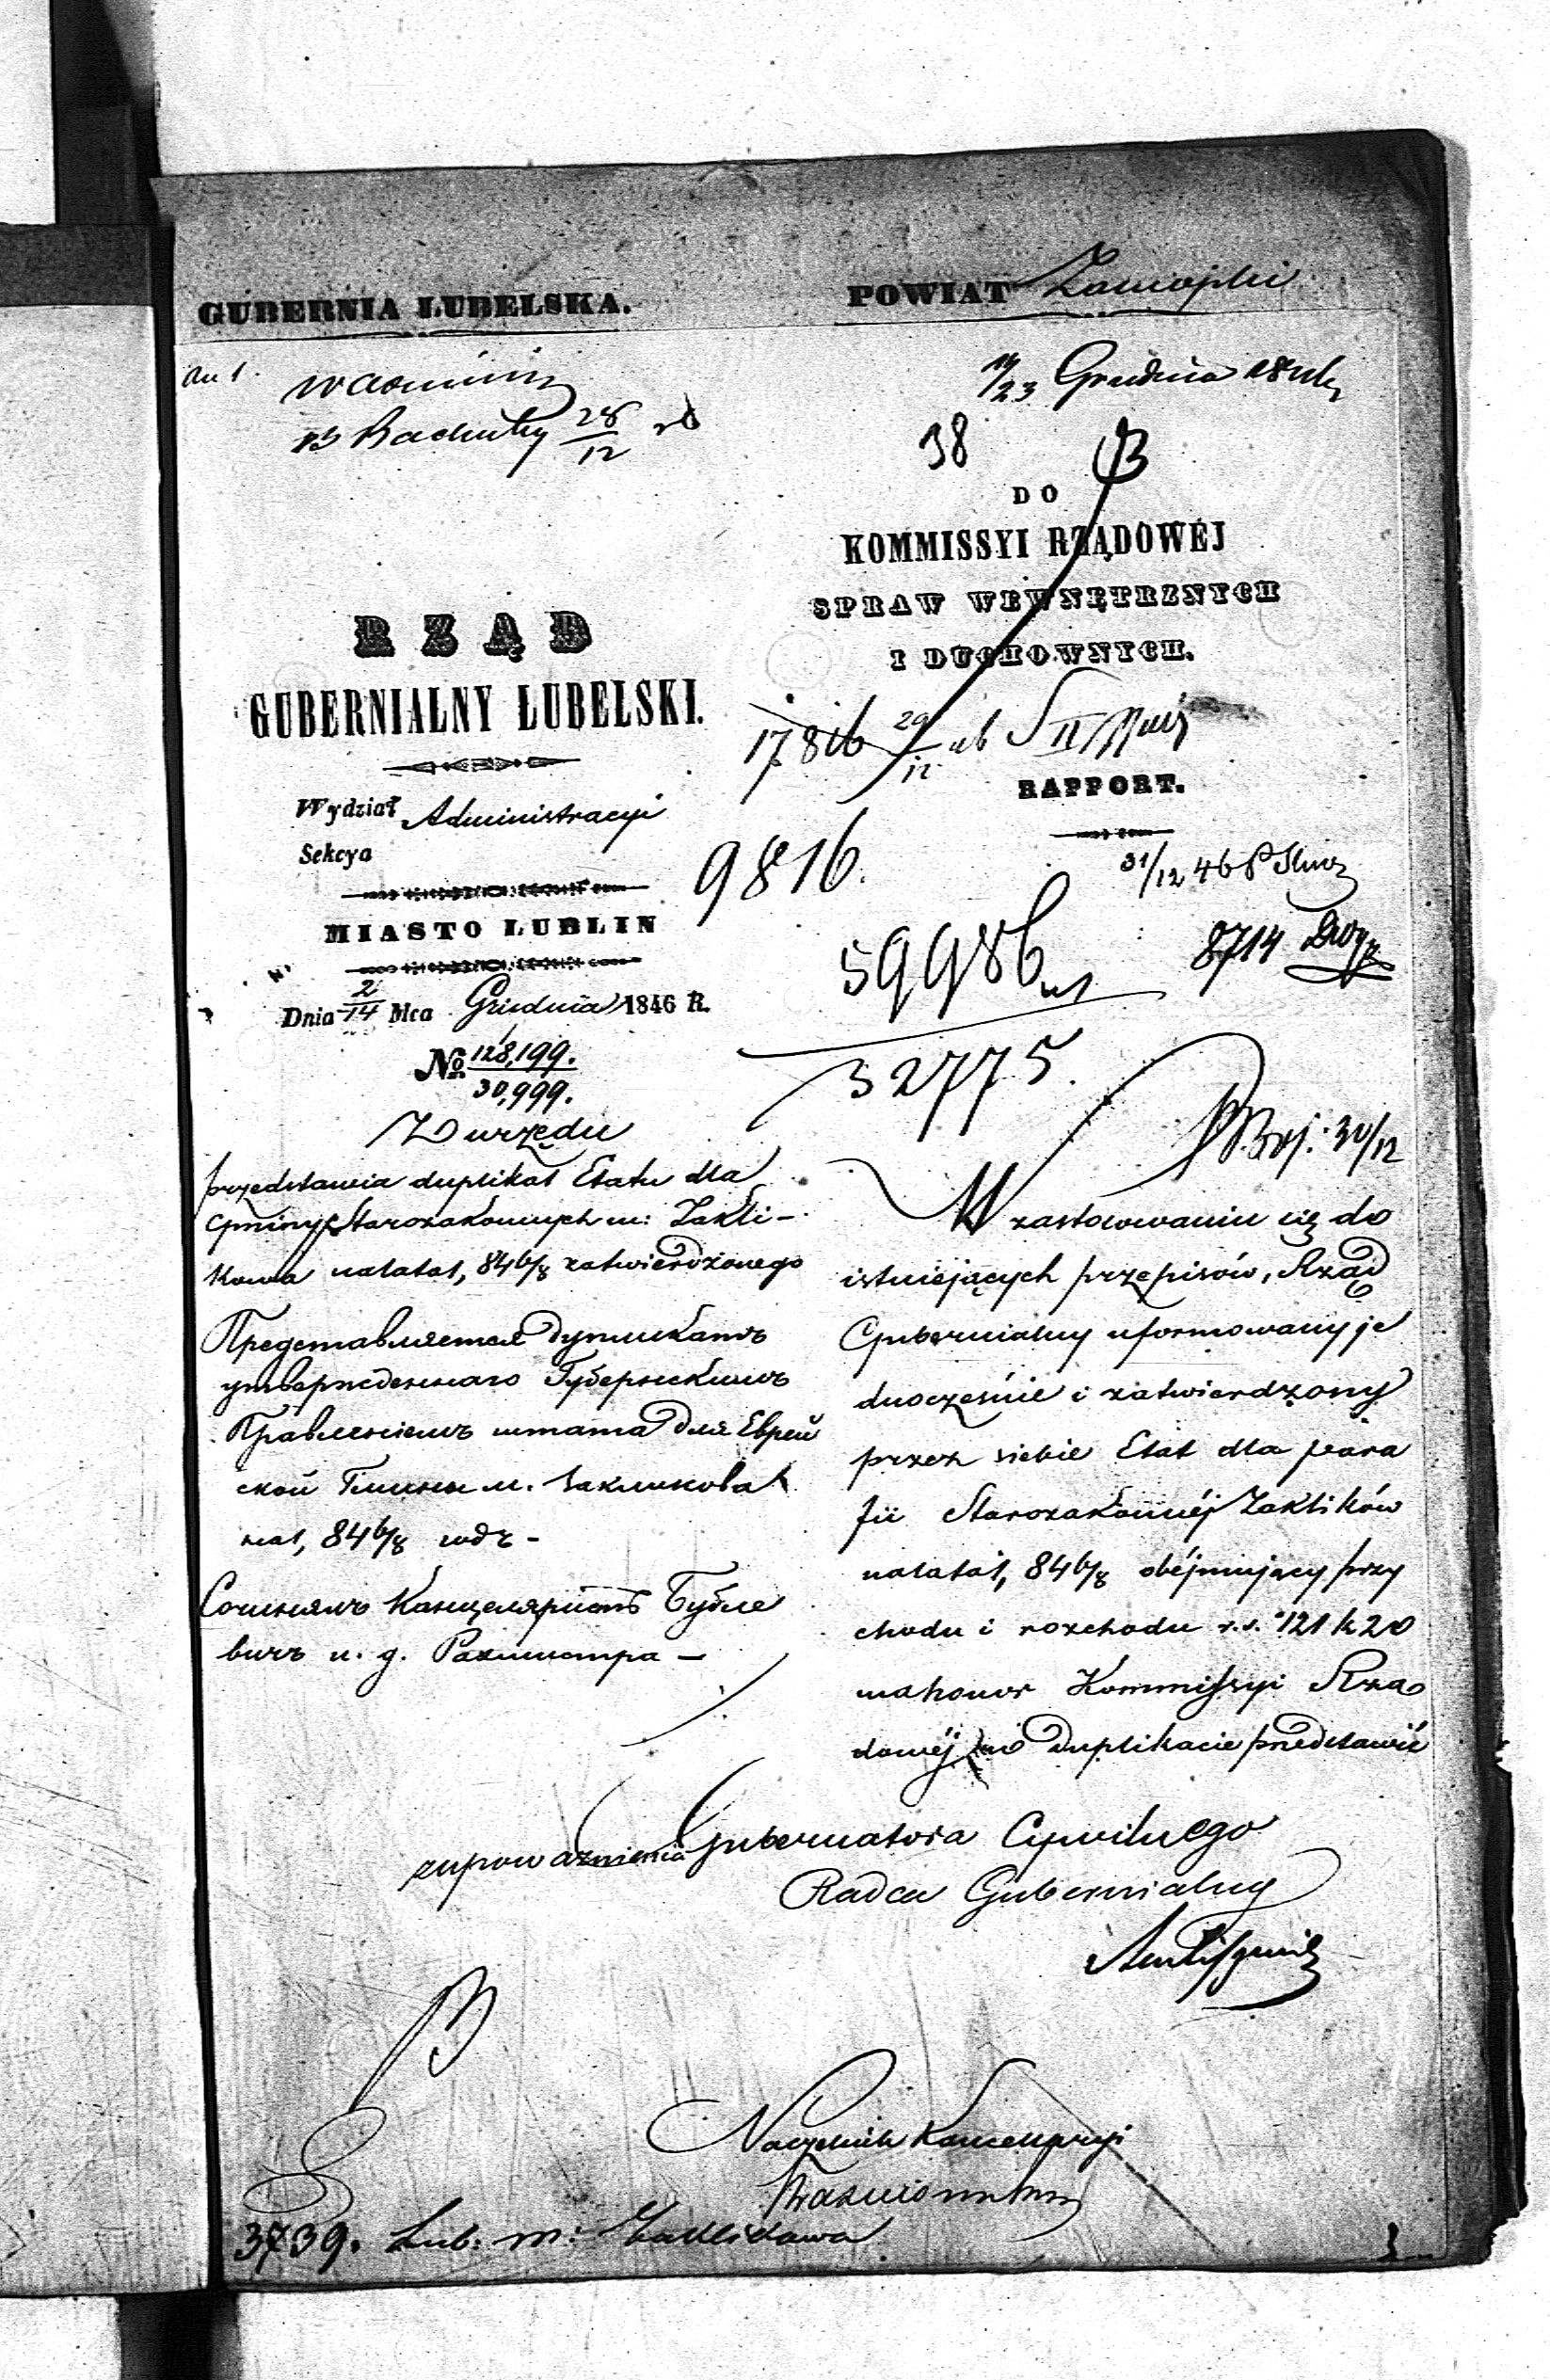 GUBERNIA LUBELSKA.
POWIAT Zamojski
an 1.
28/12
11/23 Grudnia
38
DO
KOMMISSYI RZĄDOWÉJ
SPRAW WEWNĘTRZNYCH
I DUCHOWNYCH.
RZĄD
GUBERNIALNY LUBELSKI.
29/12
RAPPORT.
Wydział Administracyi
Sekcya
9816.
31/12 46
MIASTO LUBLIN
59986
8714
Dnia 2/14 Mca Grudnia 1846 R.
No 128,199.
30,999.
32775.
30/12
Z urzędu
przedstawia duplikat Etatu dla
Gminy Starozakonnych m: Zakli-
kowa na lata 1, 846/8 zatwierdzonego
Представляется дупликатъ
утвержденнаго Губернскимъ
Правленіемъ штата для Еврей
ской Гмины м. Закликова
на 1, 846/8 годъ -
Сочинялъ Канцеляристъ Бубле
вичъ и. д. Рахмистра -
W zastosowaniu się do
istniejących przepisów, Rząd
Gubernialny uformowany je
dnocześnie i zatwierdzony
przez siebie Etat dla para
fii Starozakonnéj Zaklików
na lata 1, 846/8 obéjmujący przy
chodu i rozchodu r.s. 121 k 20
ma honor Kommissyi Rzą
dowéj w duplikacie przedstawić
z upoważnienia Gubernatora Cywilnego
Radca Gubernialny
Naczelnik Kancellaryi
3739. Lub: m: Zaklikowa